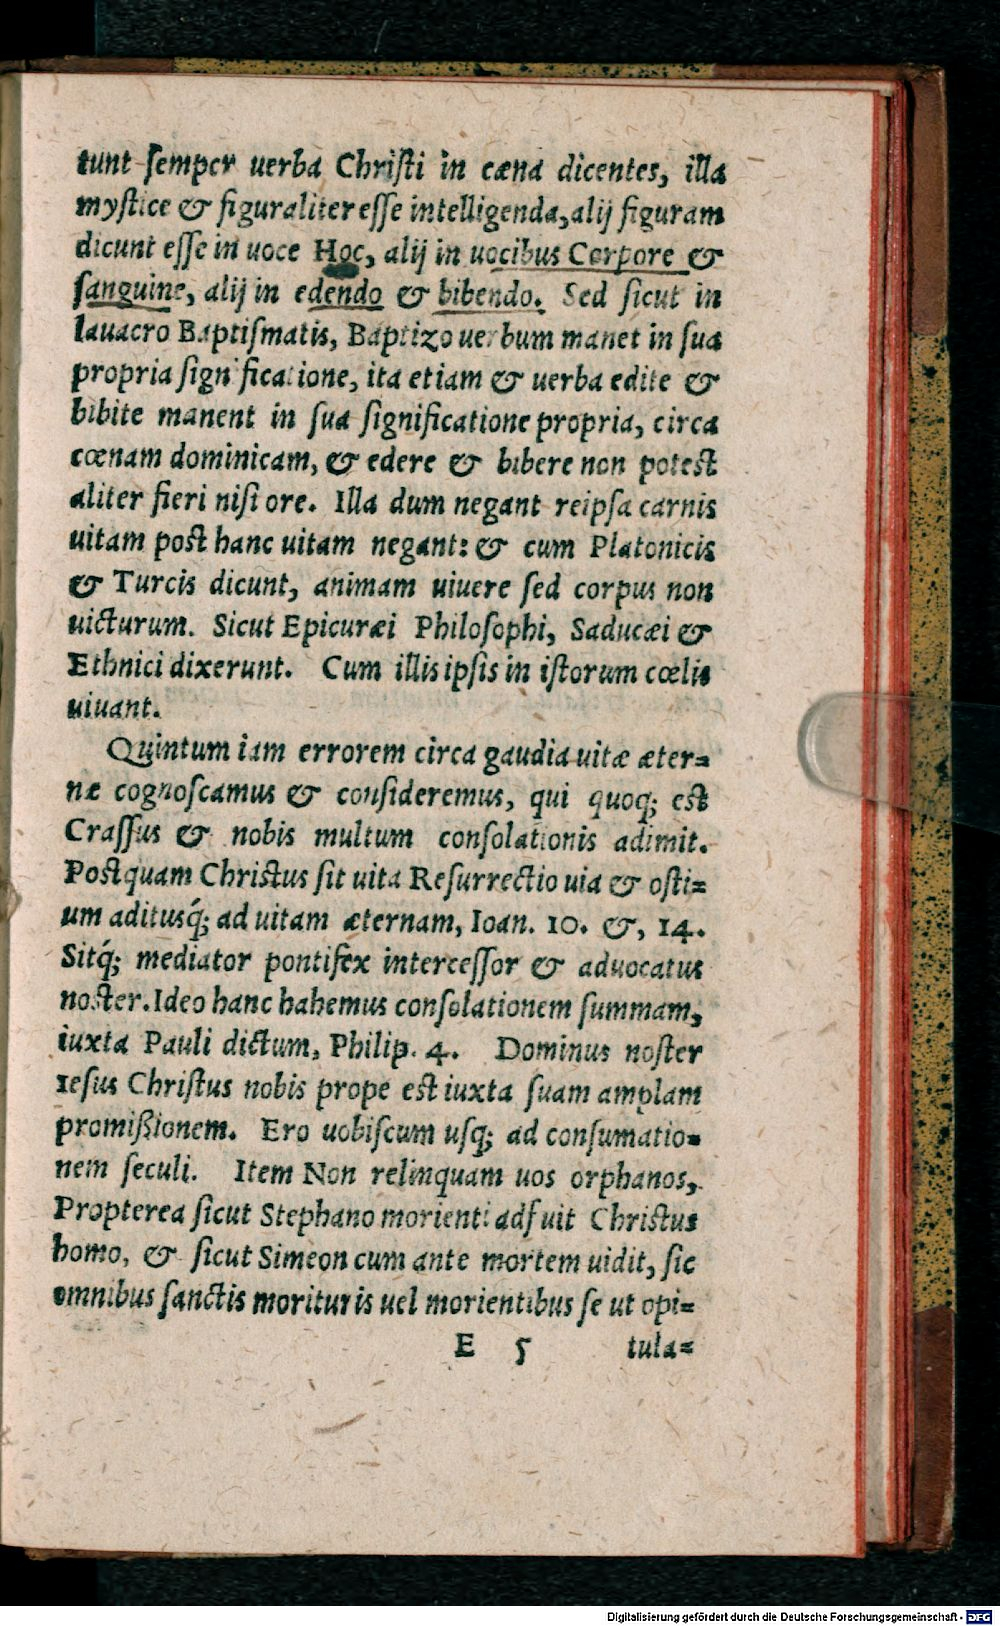 tunt semper uerba Christi in cæna dicentes, illa
mystice & figuraliter esse intelligenda, alij figuram
dicunt esse in uoce Hoc, alij in uocibus Corpore &
sanguine, alij in edendo & bibendo. Sed sicut in
lauacro Baptismatis, Baptizo uerbum manet in sua
propria significatione, ita etiam & uerba edite &
bibite manent in sua significatione propria, circa
cœnam dominicam, & edere & bibere non potest
aliter fieri nisi ore. Illa dum negant reipsa carnis
uitam post hanc uitam negant: & cum Platonicis
& Turcis dicunt, animam uiuere sed corpus non
uicturum. Sicut Epicuræi Philosophi, Saducæi &
Ethnici dixerunt. Cum illis ipsis in istorum cœlis
uiuant.
Quintum iam errorem circa gaudia uitæ æter=
næ cognoscamus & consideremus, qui quoq; est
Crassus & nobis multum consolationis adimit.
Postquam Christus sit uita Resurrectio uia & osti=
um aditusq́; ad uitam æternam, Ioan. 10. &, 14.
Sitq́; mediator pontifex intercessor & aduocatus
noster. Ideo hanc habemus consolationem summam,
iuxta Pauli dictum, Philip. 4. Dominus noster
Iesus Christus nobis prope est iuxta suam amplam
promißionem. Ero uobiscum usq; ad consumatio=
nem seculi. Item Non relinquam uos orphanos,
Propterea sicut Stephano morienti adfuit Christus
homo, & sicut Simeon cum ante mortem uidit, sic
omnibus sanctis morituris uel morientibus se ut opi=
E 5 tula=
Digitalisierung gefördert durch die Deutsche Forschungsgemeinschaft - DFG